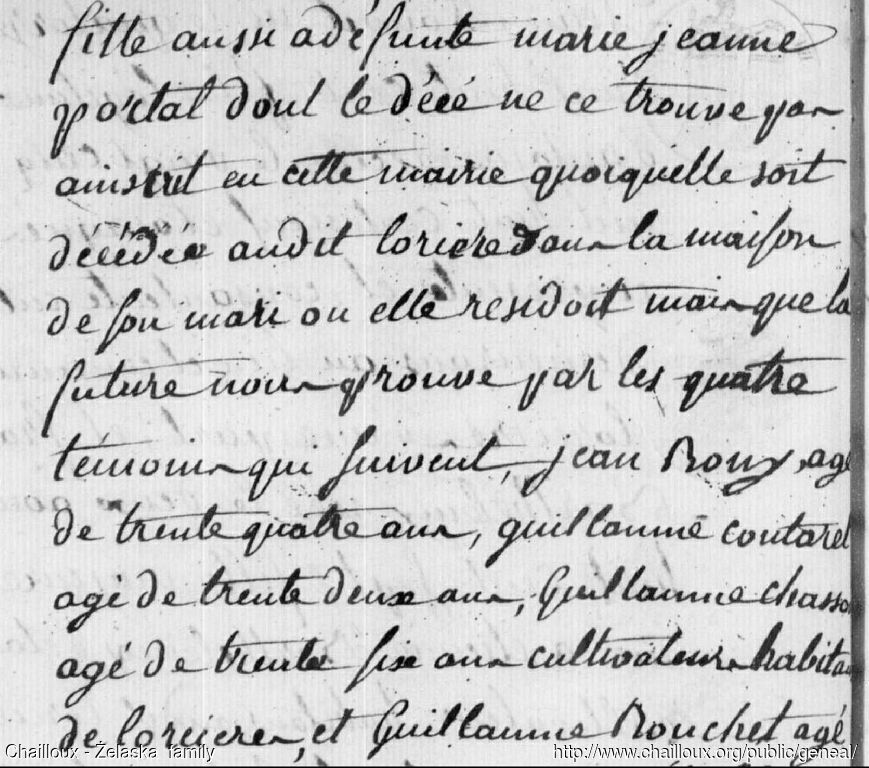 fille aussi a défunte marie jeanne
portal dont le décé ne ce trouve pas
ainscrit en cette mairie quoiquelle soit
décédée audit lorière dans la maison
de son mari ou elle residoit mais que la
future nous prouve par les quatre
témoins qui suivent, jean Roux agé
de trente quatre ans, guillaume coutarel
agé de trente deux ans, Guillaume chasson
agé de trente six ans cultivateurs habitan
de lorieres, et Guillaume Rouchet agé
Chailloux - Želaska family
http://www.chailloux.org/public/geneal/